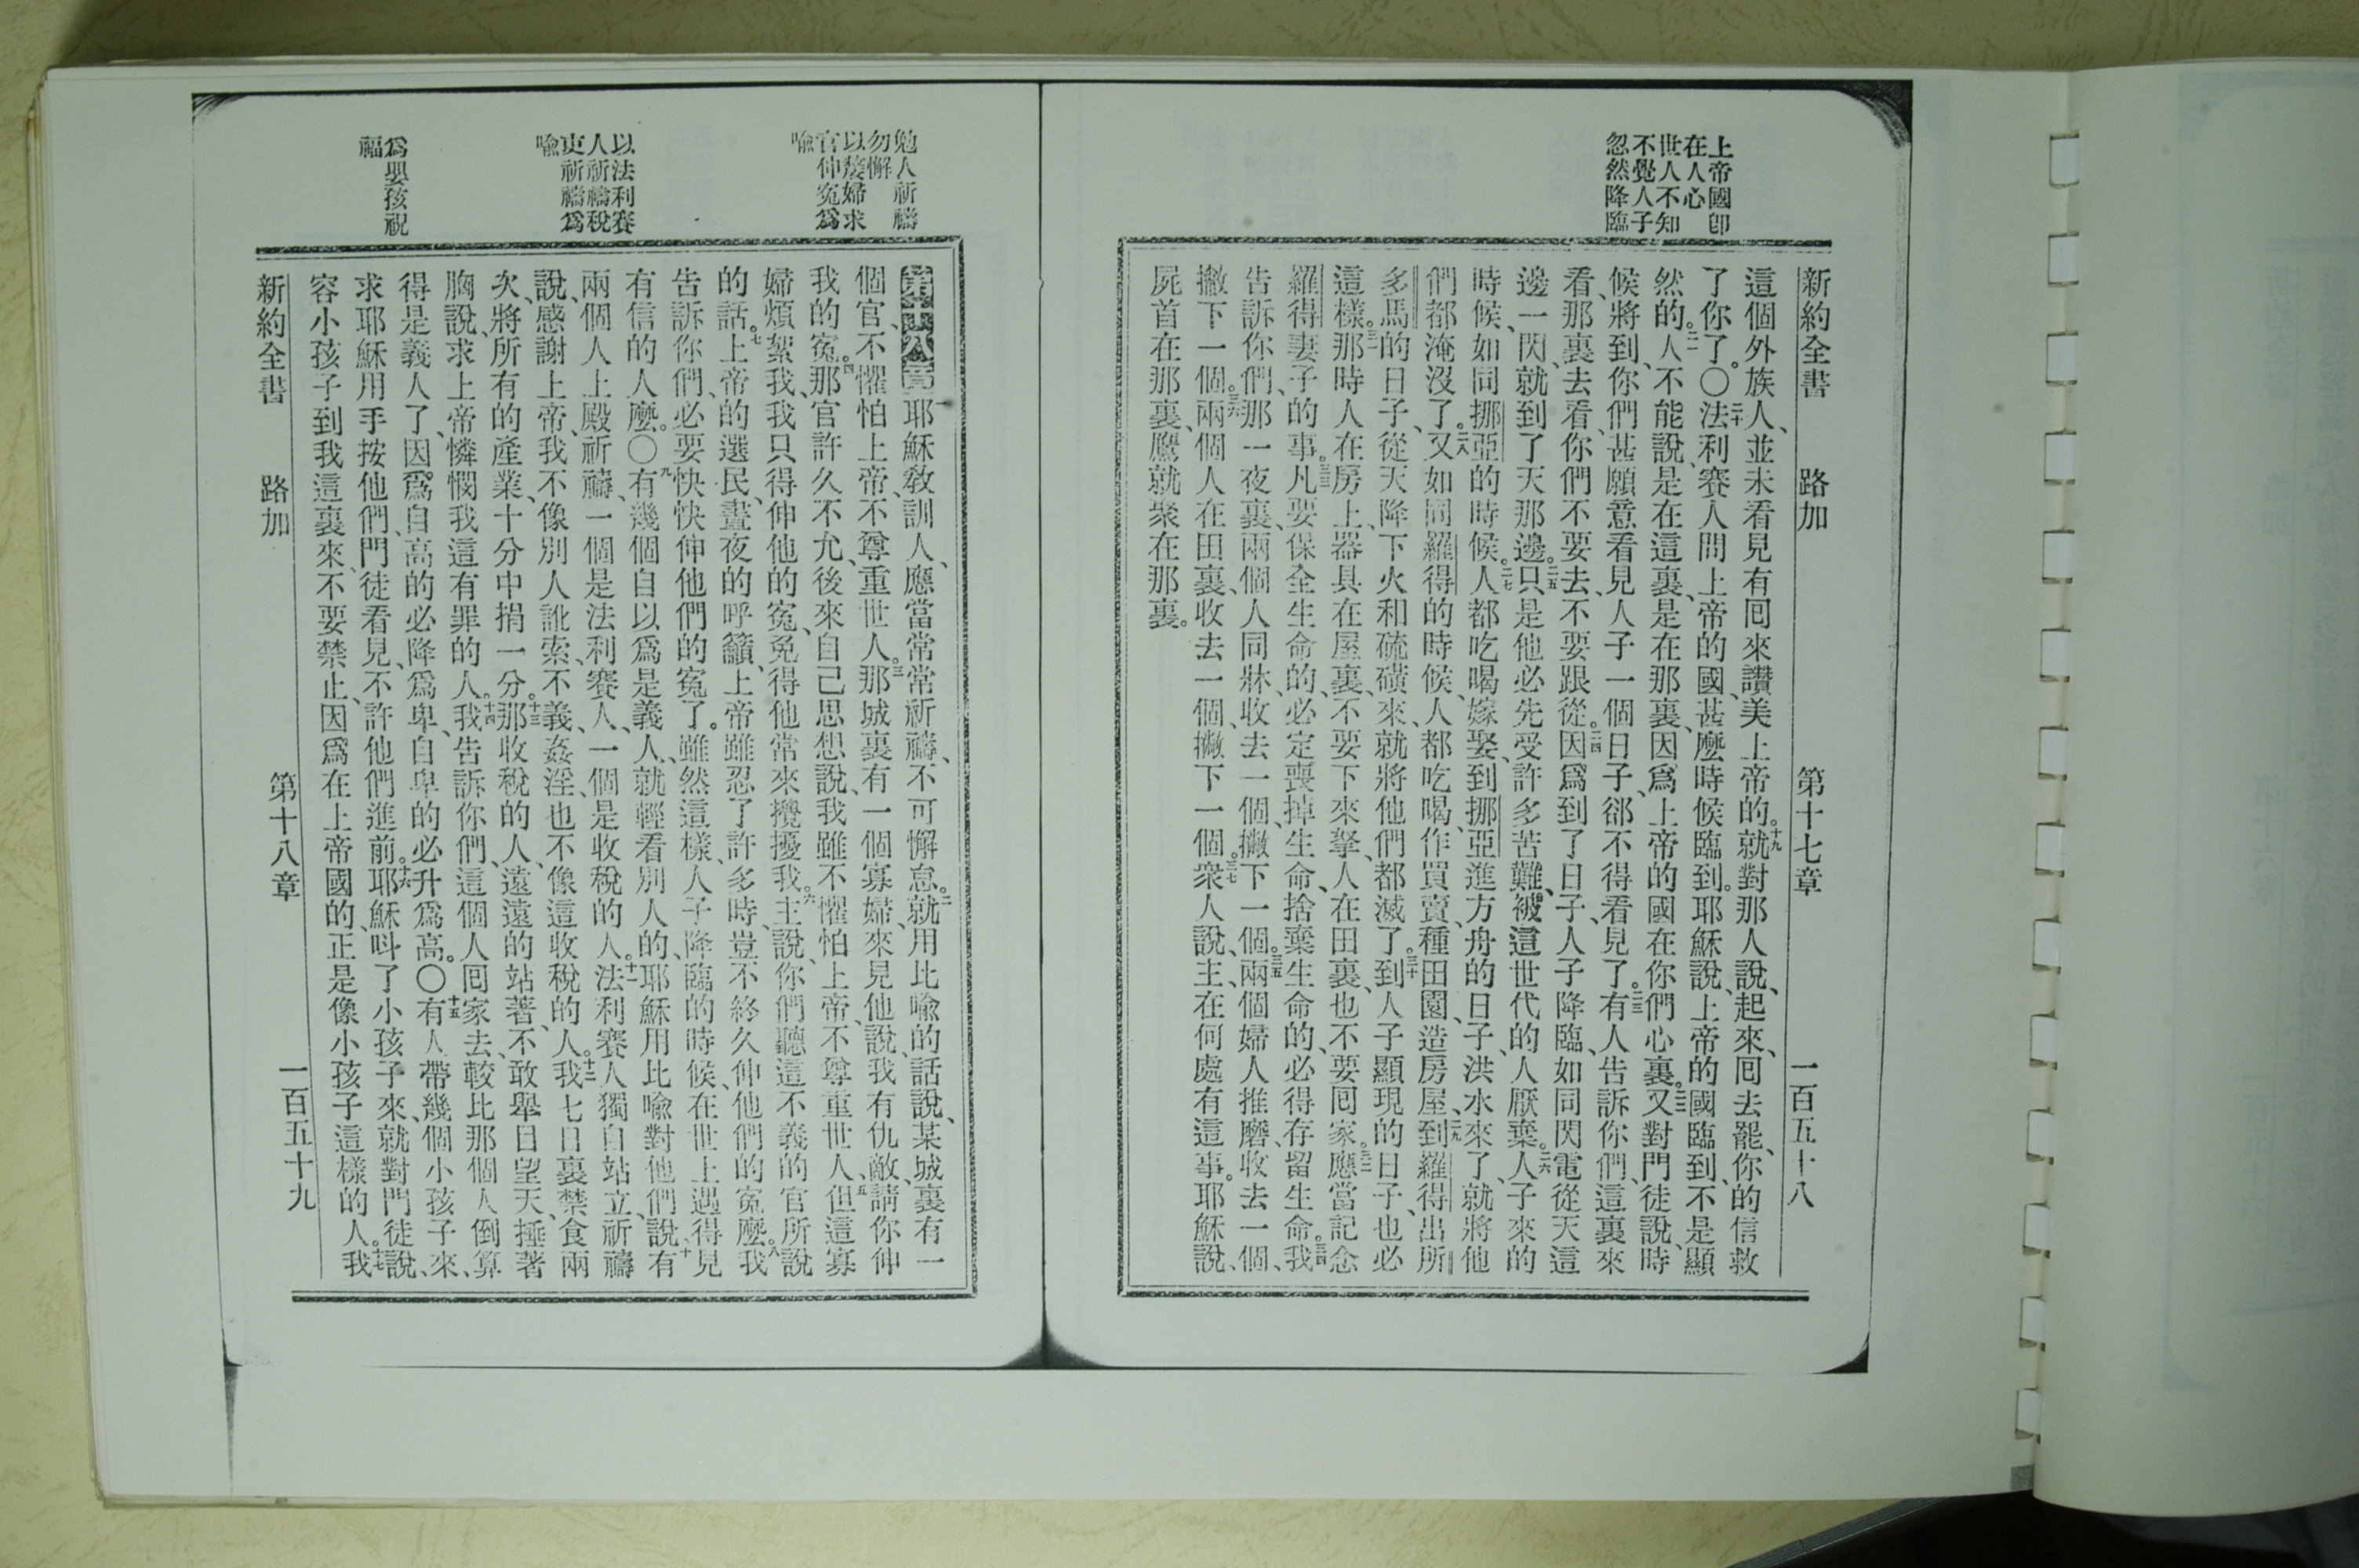 上帝國卽
在人心
世人不知
不覺人子
忽然降臨
新約全書 路加 第十七章 一百五十八
這個外族人、並未看見有回來讚美上帝的。十九就對那人說、起來、回去罷、你的信救
了你了。〇二十法利賽人問上帝的國、甚麼時候臨到。耶穌說、上帝的國臨到、不是顯
然的。二一人不能說、是在這裏、是在那裏、因爲上帝的國在你們心裏。二二又對門徒說、時
候將到、你們甚願意看見人子一個日子、卻不得看見了。二三有人告訴你們、這裏來
看、那裏去看、你們不要去、不要跟從。二四因爲到了日子、人子降臨、如同閃電從天這
邊一閃、就到了天那邊。二五只是他必先受許多苦難、被這世代的人厭棄。二六人子來的
時候、如同挪亞的時候。二七人都吃喝嫁娶、到挪亞進方舟的日子、洪水來了、就將他
們都淹沒了。二八又如同羅得的時候、人都吃喝、作買賣、種田園、造房屋、二九到羅得出所
多馬的日子、從天降下火和硫磺來、就將他們都滅了。三十到人子顯現的日子、也必
這樣。三一那時人在房上、器具在屋裏、不要下來拏、人在田裏、也不要回家。三二應當記念
羅得妻子的事。三三凡要保全生命的、必定喪掉生命、捨棄生命的、必得存留生命。三四我
告訴你們、那一夜裏、兩個人同牀、收去一個、撇下一個。三五兩個婦人推磨、收去一個、
撇下一個。三六兩個人在田裏、收去一個、撇下一個。三七衆人說、主、在何處有這事。耶穌說、
屍首在那裏、鷹就聚在那裏。
勉人祈禱
勿懈
以嫠婦求
官伸冤爲
喩
以法利賽
人祈禱稅
吏祈禱爲
喩
爲嬰孩祝
福
第十八章一耶穌教訓人、應當常常祈禱、不可懈怠。二就用比喩的話說、某城裏有一
個官、不懼怕上帝、不尊重世人。三那城裏有一個寡婦、來見他說、我有仇敵、請你伸
我的冤。四那官許久不允、後來自己思想說、我雖不懼怕上帝、不尊重世人、五但這寡
婦煩絮我、我只得伸他的冤、免得他常來攪擾我。六主說、你們聽這不義的官所說
的話。七上帝的選民、晝夜的呼籲、上帝雖忍了許多時、豈不終久伸他們的冤麼。八我
告訴你們、必要快快伸他們的冤了。雖然這樣、人子降臨的時候、在世上遇得見
有信的人麼。〇九有幾個自以爲是義人、就輕看別人的、耶穌用比喩對他們說、十有
兩個人上殿祈禱、一個是法利賽人、一個是收稅的人。十一法利賽人獨自站立、祈禱
說、感謝上帝、我不像別人訛索、不義、姦淫、也不像這收稅的人。十二我七日裏禁食兩
次、將所有的產業、十分中捐一分。十三那收稅的人、遠遠的站著、不敢舉目望天、捶著
胸說、求上帝憐憫我這有罪的人。十四我告訴你們、這個人回家去、較比那個人倒算
得是義人了、因爲自高的必降爲卑、自卑的必升爲高。〇十五有人帶幾個小孩子來、
求耶穌用手按他們、門徒看見、不許他們進前。十六耶穌呌了小孩子來、就對門徒說、
容小孩子到我這裏來、不要禁止、因爲在上帝國的、正是像小孩子這樣的人。十七我
新約全書 路加 第十八章 一百五十九